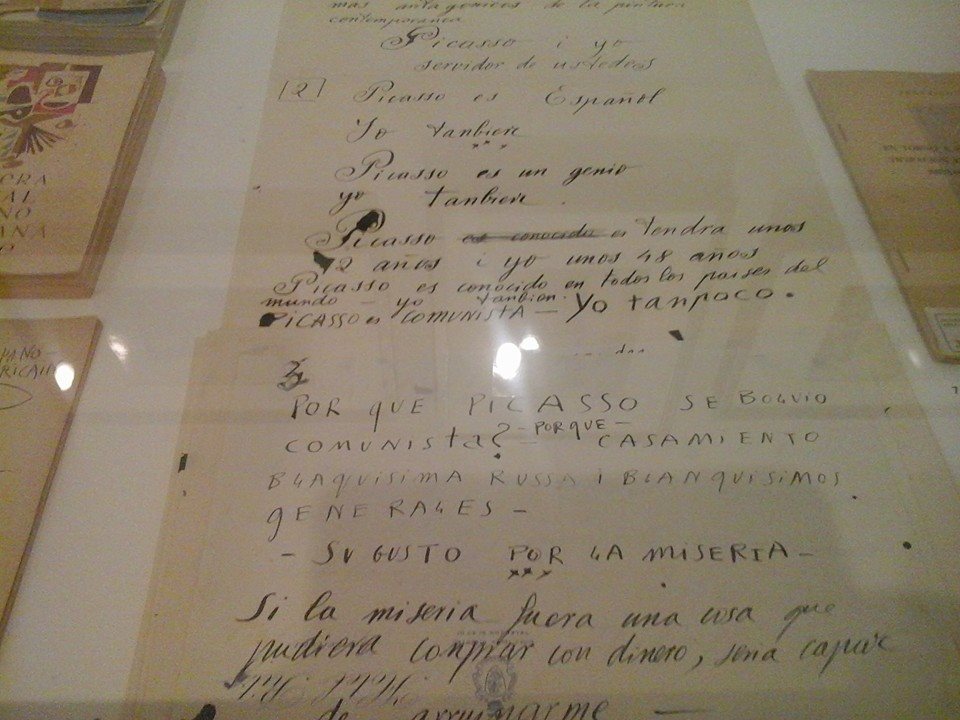 mas antagonicos de la pintura
contemporanea
Picasso i yo
servidor de ustedes
[2] Picasso es Español
Yo tanbien
Picasso es un genio
yo tanbien.
Picasso es conocido es tendra unos
72 años i yo unos 48 años
Picasso es conocido en todos los paises del
mundo - yo tanbien.
PiCASSO es COMUNISTA - Yo tanpoco.
3
POR QUE PICASSO SE BOLVIO
COMUNISTA? - PORQUE - CASAMIENTO
BLAQUISIMA RUSSA I BLANQUISIMOS
GENERALES -
- SU GUSTO POR LA MISERIA -
Si la miseria fuera una cosa que
pudiera conprar con dinero, seria capaz
de arruinarme -